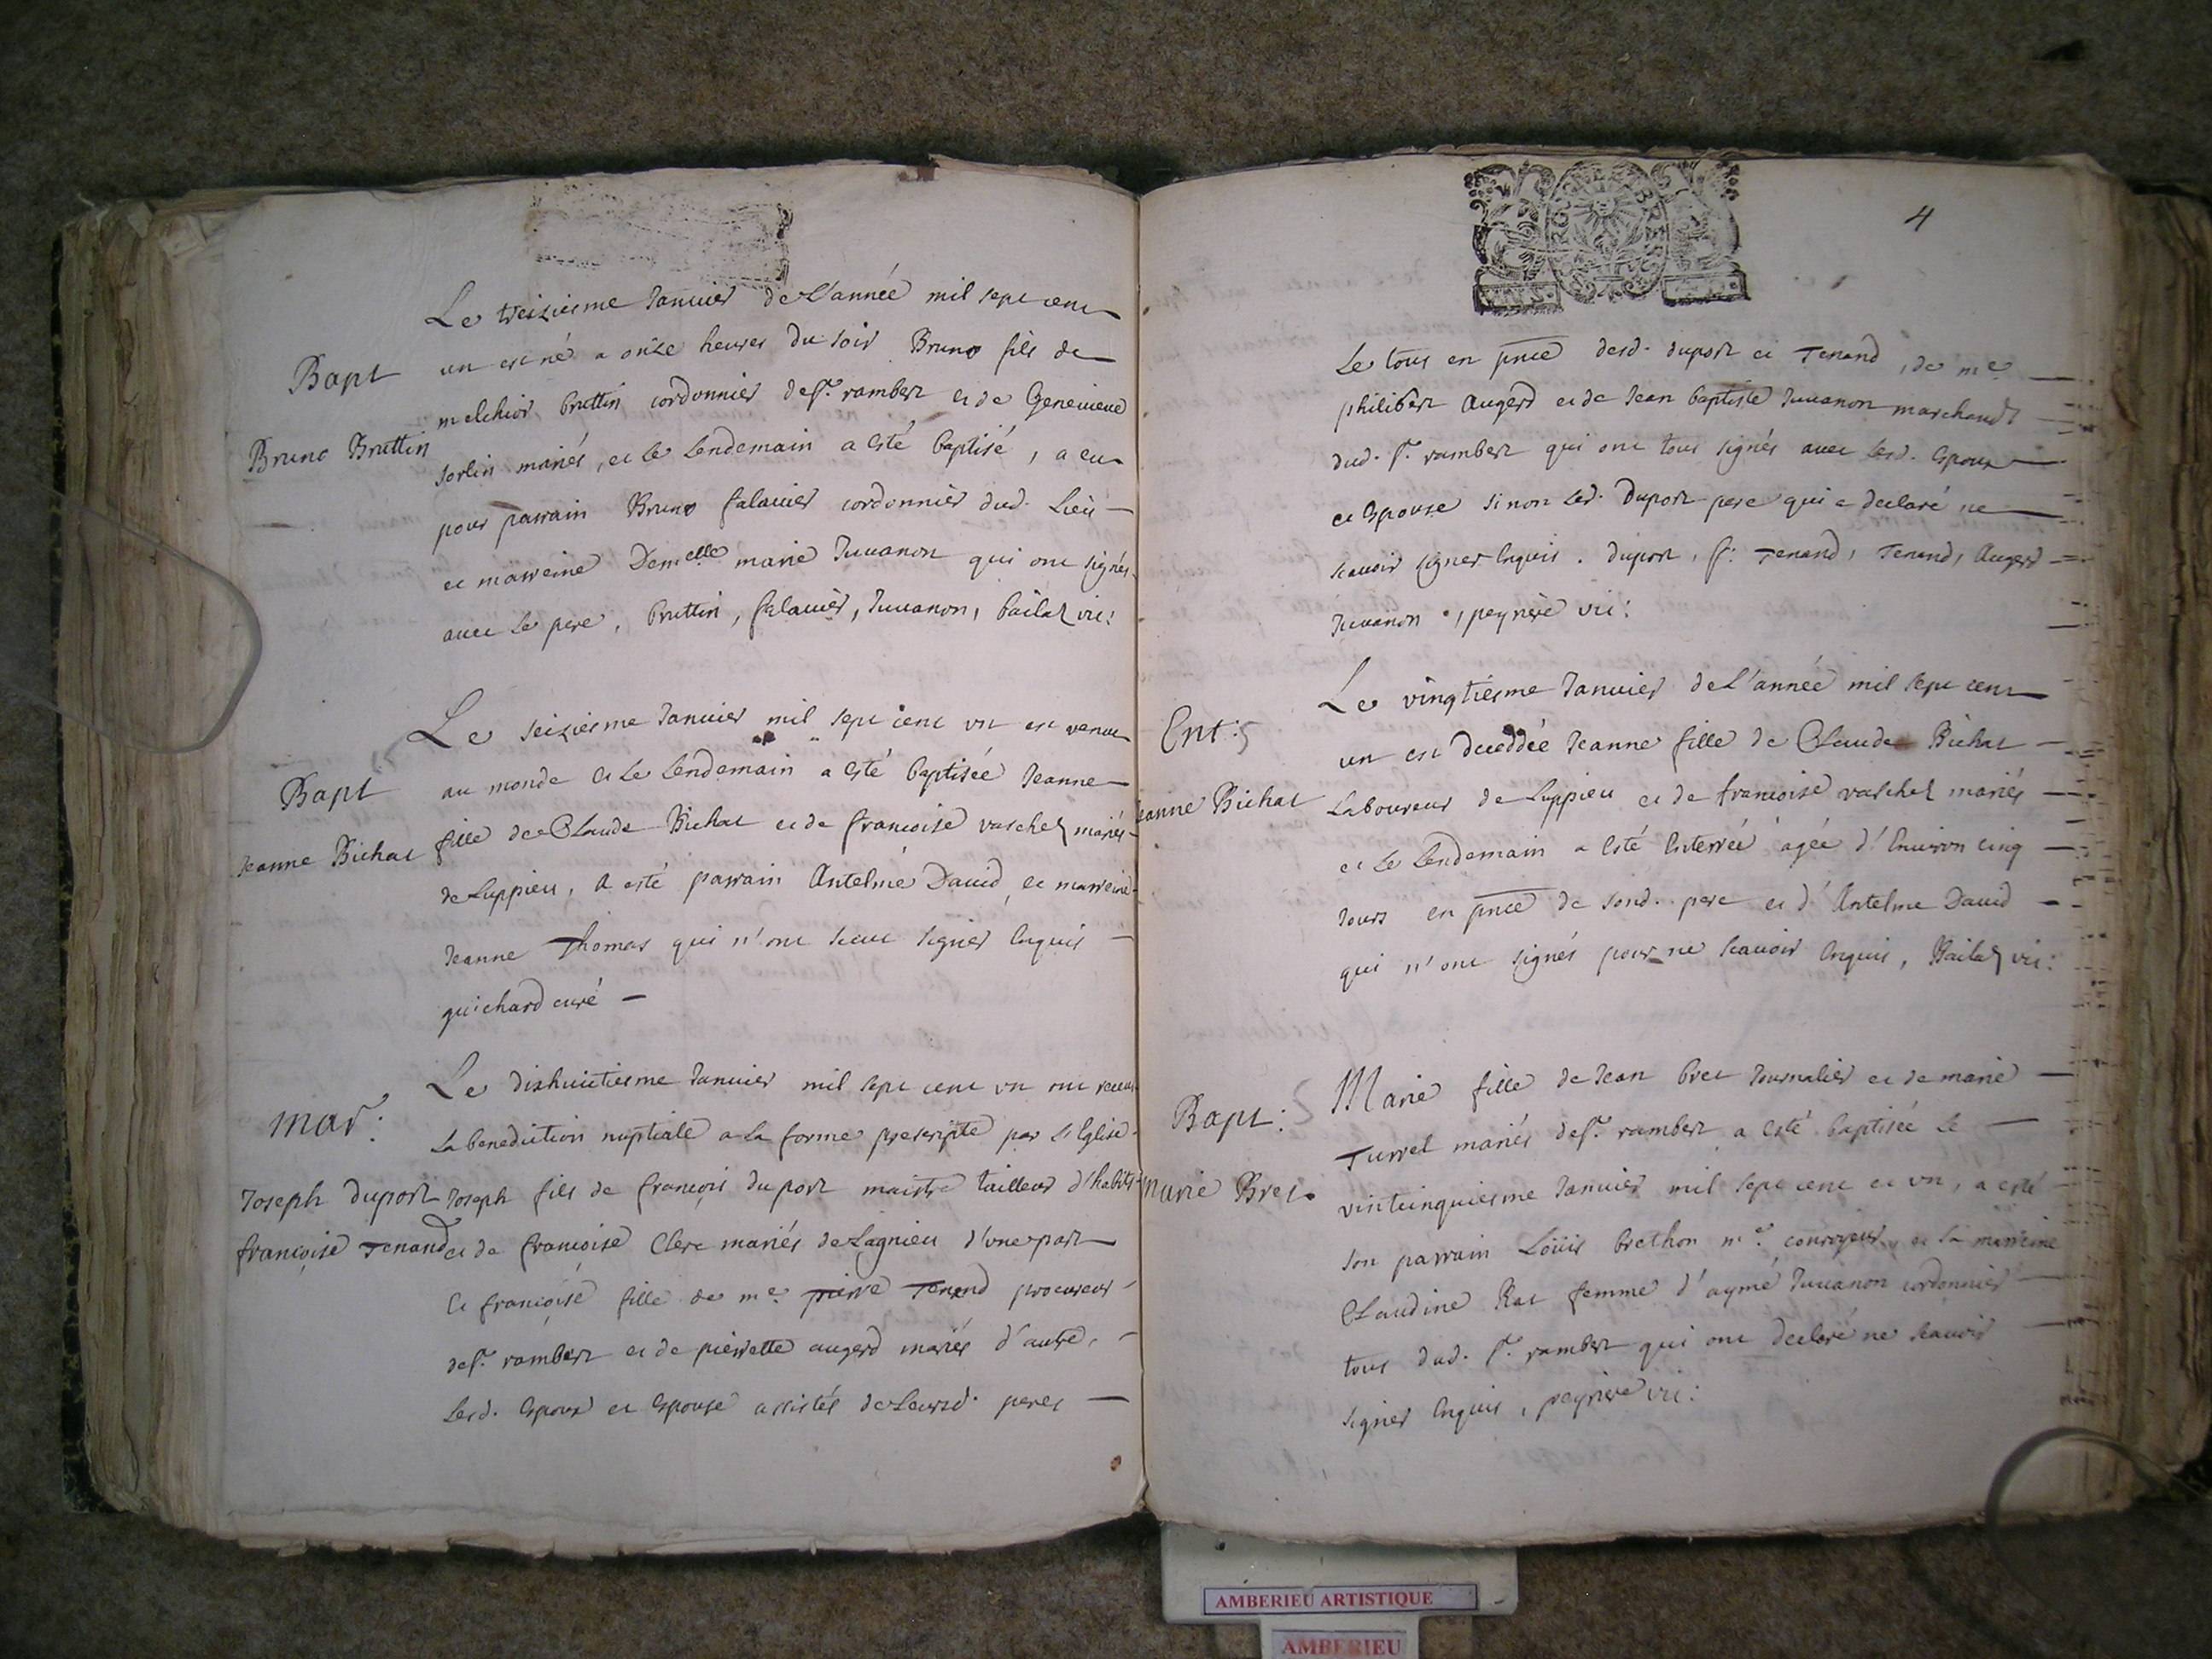 Le treiziesme Januier de L'année mil sept cent
Bapt
un est né a onze heures du soir Bruno fils de
melchior bruttin cordonnier de St. rambert et de Geneuieue
Bruno Bruttin
sorlin mariés, et le lendemain a esté baptisé, a eu
pour parrain Bruno falauier cordonnier dud. Lieu
et marreine Demelle marie Juuanon qui ont signés
auec le pere, bruttin, falauier, Juuanon, bailat vic:
Le seiziesme Januier mil sept cent vn est venue
Bapt
au monde et le lendemain a esté baptisée Jeanne
Jeanne Bichat
fille de Claude Bichat et de francoise vaschet mariés
de Luppieu, a esté parrain Antelme Dauid et marreine
Jeanne Thomas qui n'ont sceu signer Enquis
guichard curé
Le dixhuictiesme Januier mil sept cent vn ont receu
mar:
La benediction nuptiale a la forme prescripte par l'Eglise
Joseph duport
Joseph fils de francois duport maistre tailleur d'habits
francoise Tenand
et de francoise Clerc mariés de Lagnieu d'vne part
Et francoise fille de me. pierre Tenand procureur
de St. rambert et de pierrette augerd mariés d'autre,
Lesd. Espoux et Espouse assistés de Leursd. peres
4
Le tous en pnce desd. duport et Tenand, de me.
philibert Augerd et de Jean baptiste Juuanon marchands
dud. St. rambert qui ont tous signés auec Lesd. Espoux
et Espouse sinon Led. Duport pere qui a declaré ne
scauoir signer Enquis. duport, f: Tenand, Tenand, Augerd
Juuanon, peyriere vic:
Le vingtiesme Januier de L'année mil sept cent
Ent:
un est deceddée Jeanne fille de Claude Bichat
Jeanne Bichat
Laboureur de Luppieu et de francoise vaschet mariés
et le lendemain a esté Enterrée agée d'Enuiron cinq
Jours en pnce de sond. pere et d'Antelme Dauid
qui n'ont signés pour ne scauoir Enquis, Bailat vic:
Marie fille de Jean bret Journalier et de marie
Bapt:
Turrel mariés de St. rambert a esté baptisée le
Marie Bret
vintcinquiesme Januier mil sept cent et vn, a esté
son parrain Loüis brethon me. conroyeur, et sa marreine
Claudine Rat femme d'aymé Juuanon cordonnier
tous dud. St. rambert qui ont declaré ne scauoir
signer Enquis, peyriere vic:
AMBERIEU ARTISTIQUE
AMBERIEU